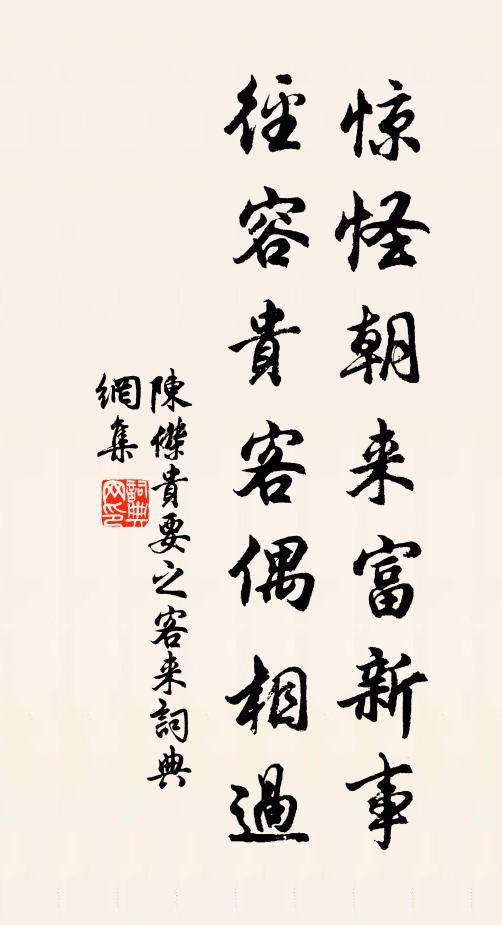 惊怪朝来富新事
径容貴客偶相過
陳傑貴要之客来詞典
網集
詞典
网印